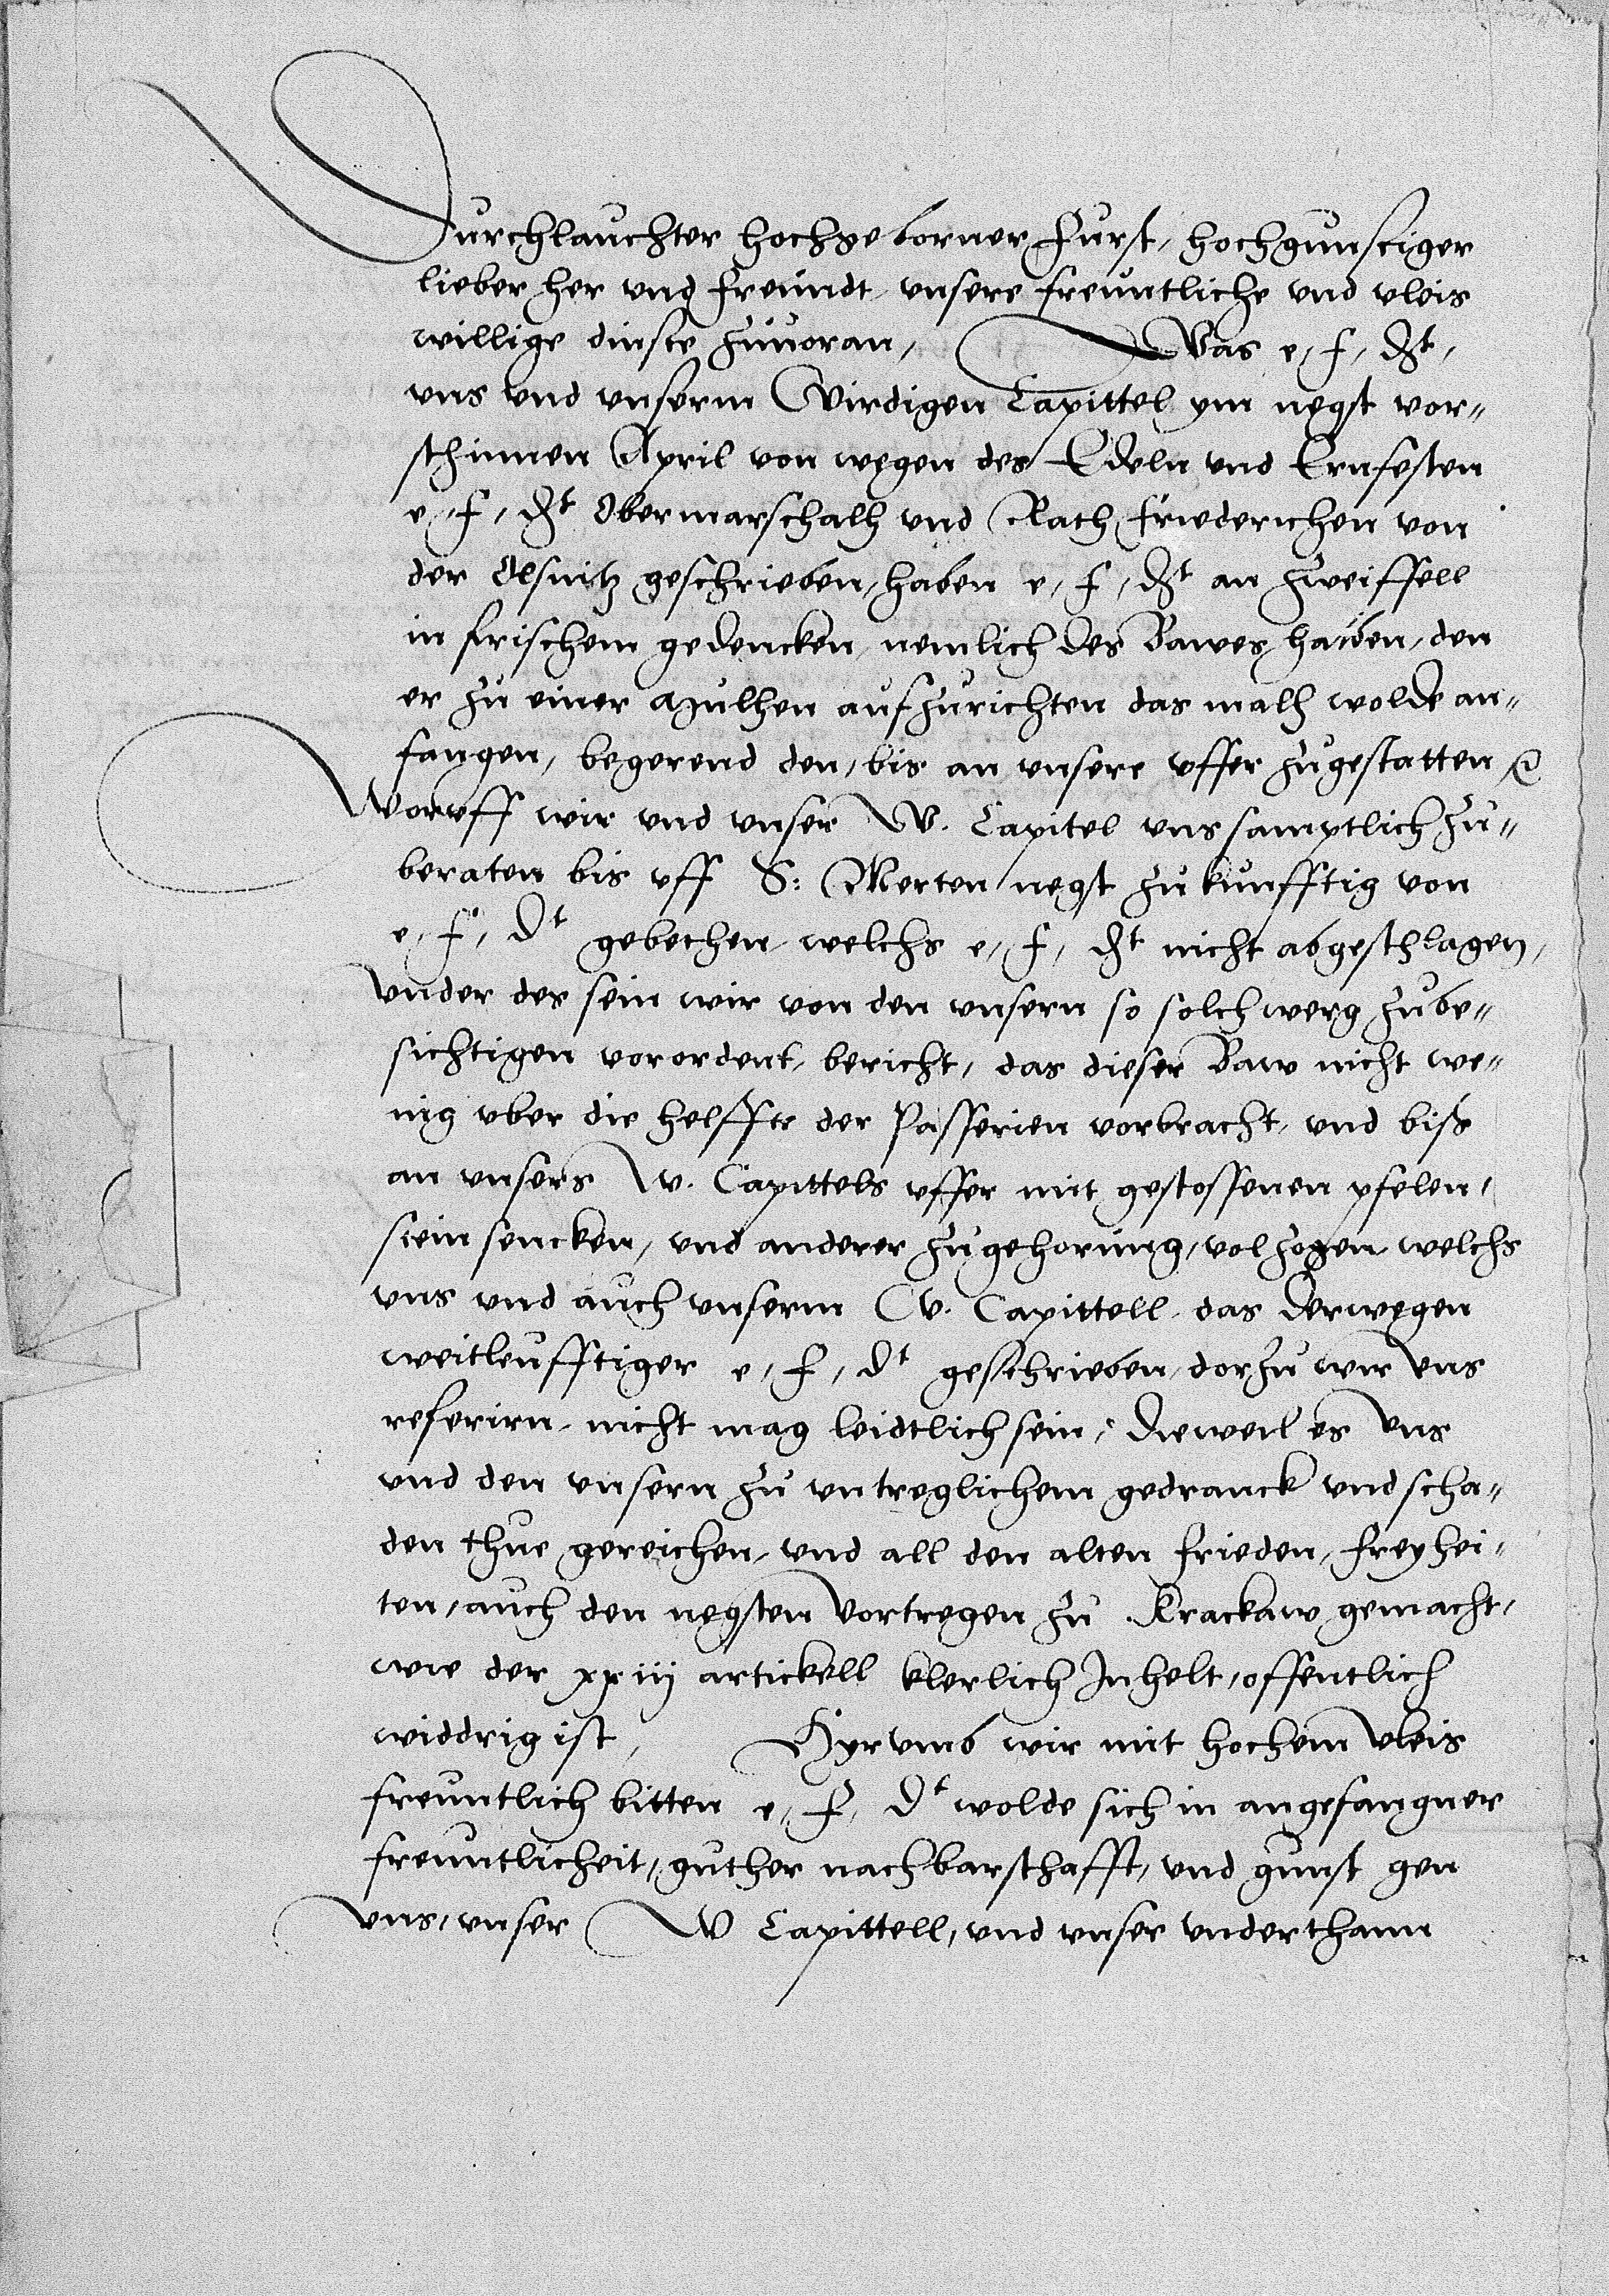 Durchlauchter hochgeborner Furst, hochgunstiger
lieber her vnd freundt, vnsere freuntliche vnd vleis
willige dinste zuuoran, Was e, f, dt,
vns vnd vnserm Wirdigen Capittel ym negst vor„
schinnen April von wegen des Edeln vnd Ernfesten
e, f, dt Obermarschalh vnd Rath friederichen von
der Olsnitz geschrieben, haben e, f, dt an zweiffell
in frischem gedencken, nemlich des Bawes halben, den
er zu einer Mulhen aufzurichten das malh wolde an„
fangen, begerend den, bis an vnsere vffer zugestatten
Woruff wir vnd vnser W. Capitel vns samptlich zu„
beraten bis vff S: Merten negst zukunfftig von
e, f, Dt gebethen, welchs e, f, dt nicht abgeschlagen,
vnder des sein wir von den vnsern so solch werg zube„
sichtigen vorordent, bericht, das dieser Baw nicht we„
nig vber die helffte der Passerien vorbracht, vnd biß
an vnsers W. Capittels vffer mit gestossenen pfelen,
stein sencken, vnd anderer zugehorung, volzogen, welchs
vns vnd auch vnserm W. Capittell, das derwegen
weitleufftiger e, f, Dt geschrieben, dorzu wir vns
referirn, nicht mag leidtlich sein, dieweil es vns
vnd den vnsern zu vntreglichem gedranck vnd scha„
den thue gereichen, vnd all den alten frieden, freyhei„
ten, auch den negsten vortregen zu Krackaw gemacht,
wie der xxiij artickell klerlich Inhelt, offentlich
widdrig ist, Hyrumb wir mit hochem vleis
freuntlich bitten e, f, Dt wolde sich in angefangner
freuntlicheit, guther nachbarschafft, vnd gunst gen
vns, vnser W Capittell, vnd vnser vnderthann